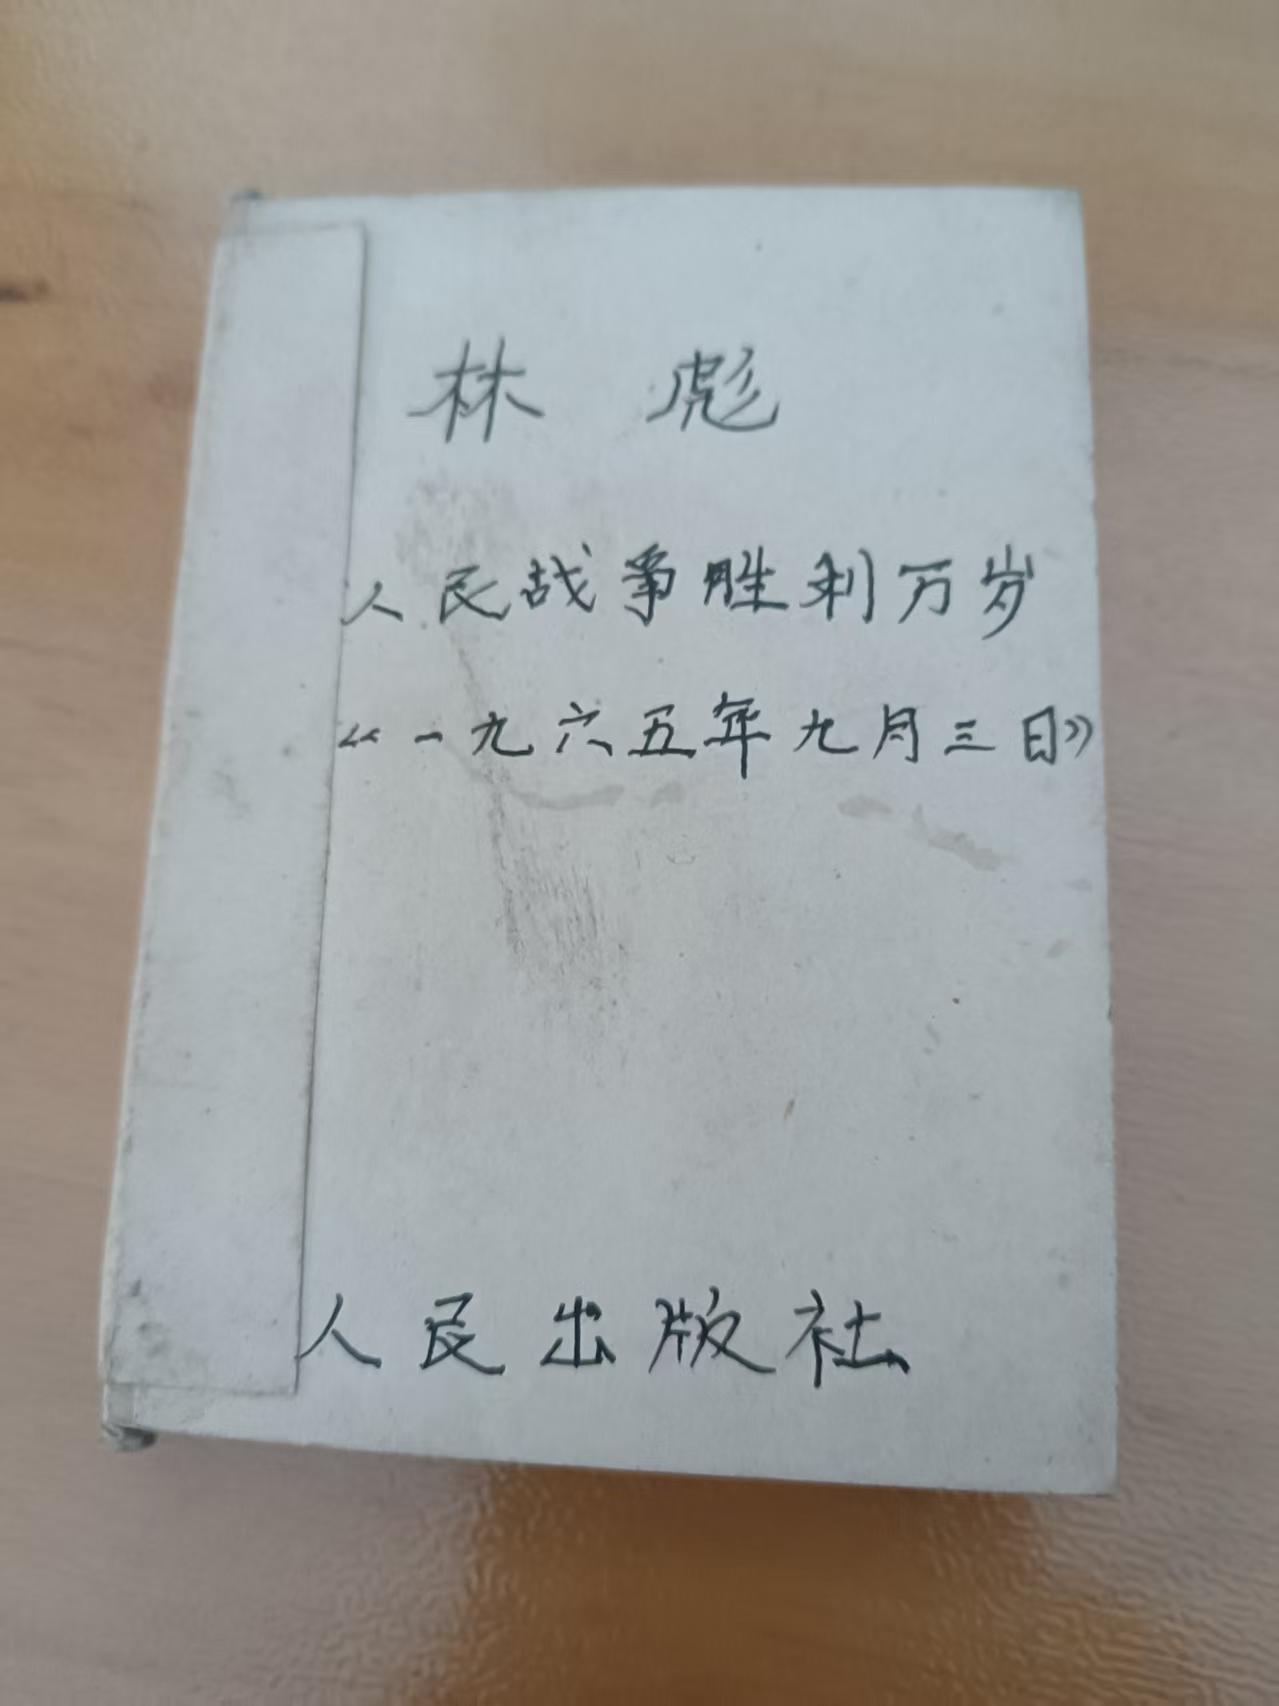 林 彪
人民战争胜利万岁
《一九六五年九月三日》
人民出版社